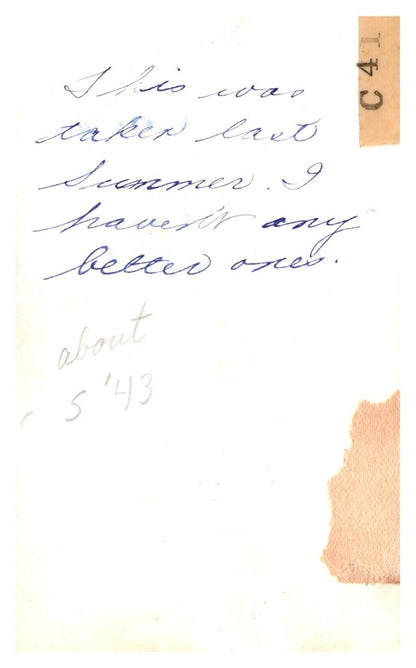 C 41
This was
taken last
Summer. I
haven't any
better ones.
about
5 '43